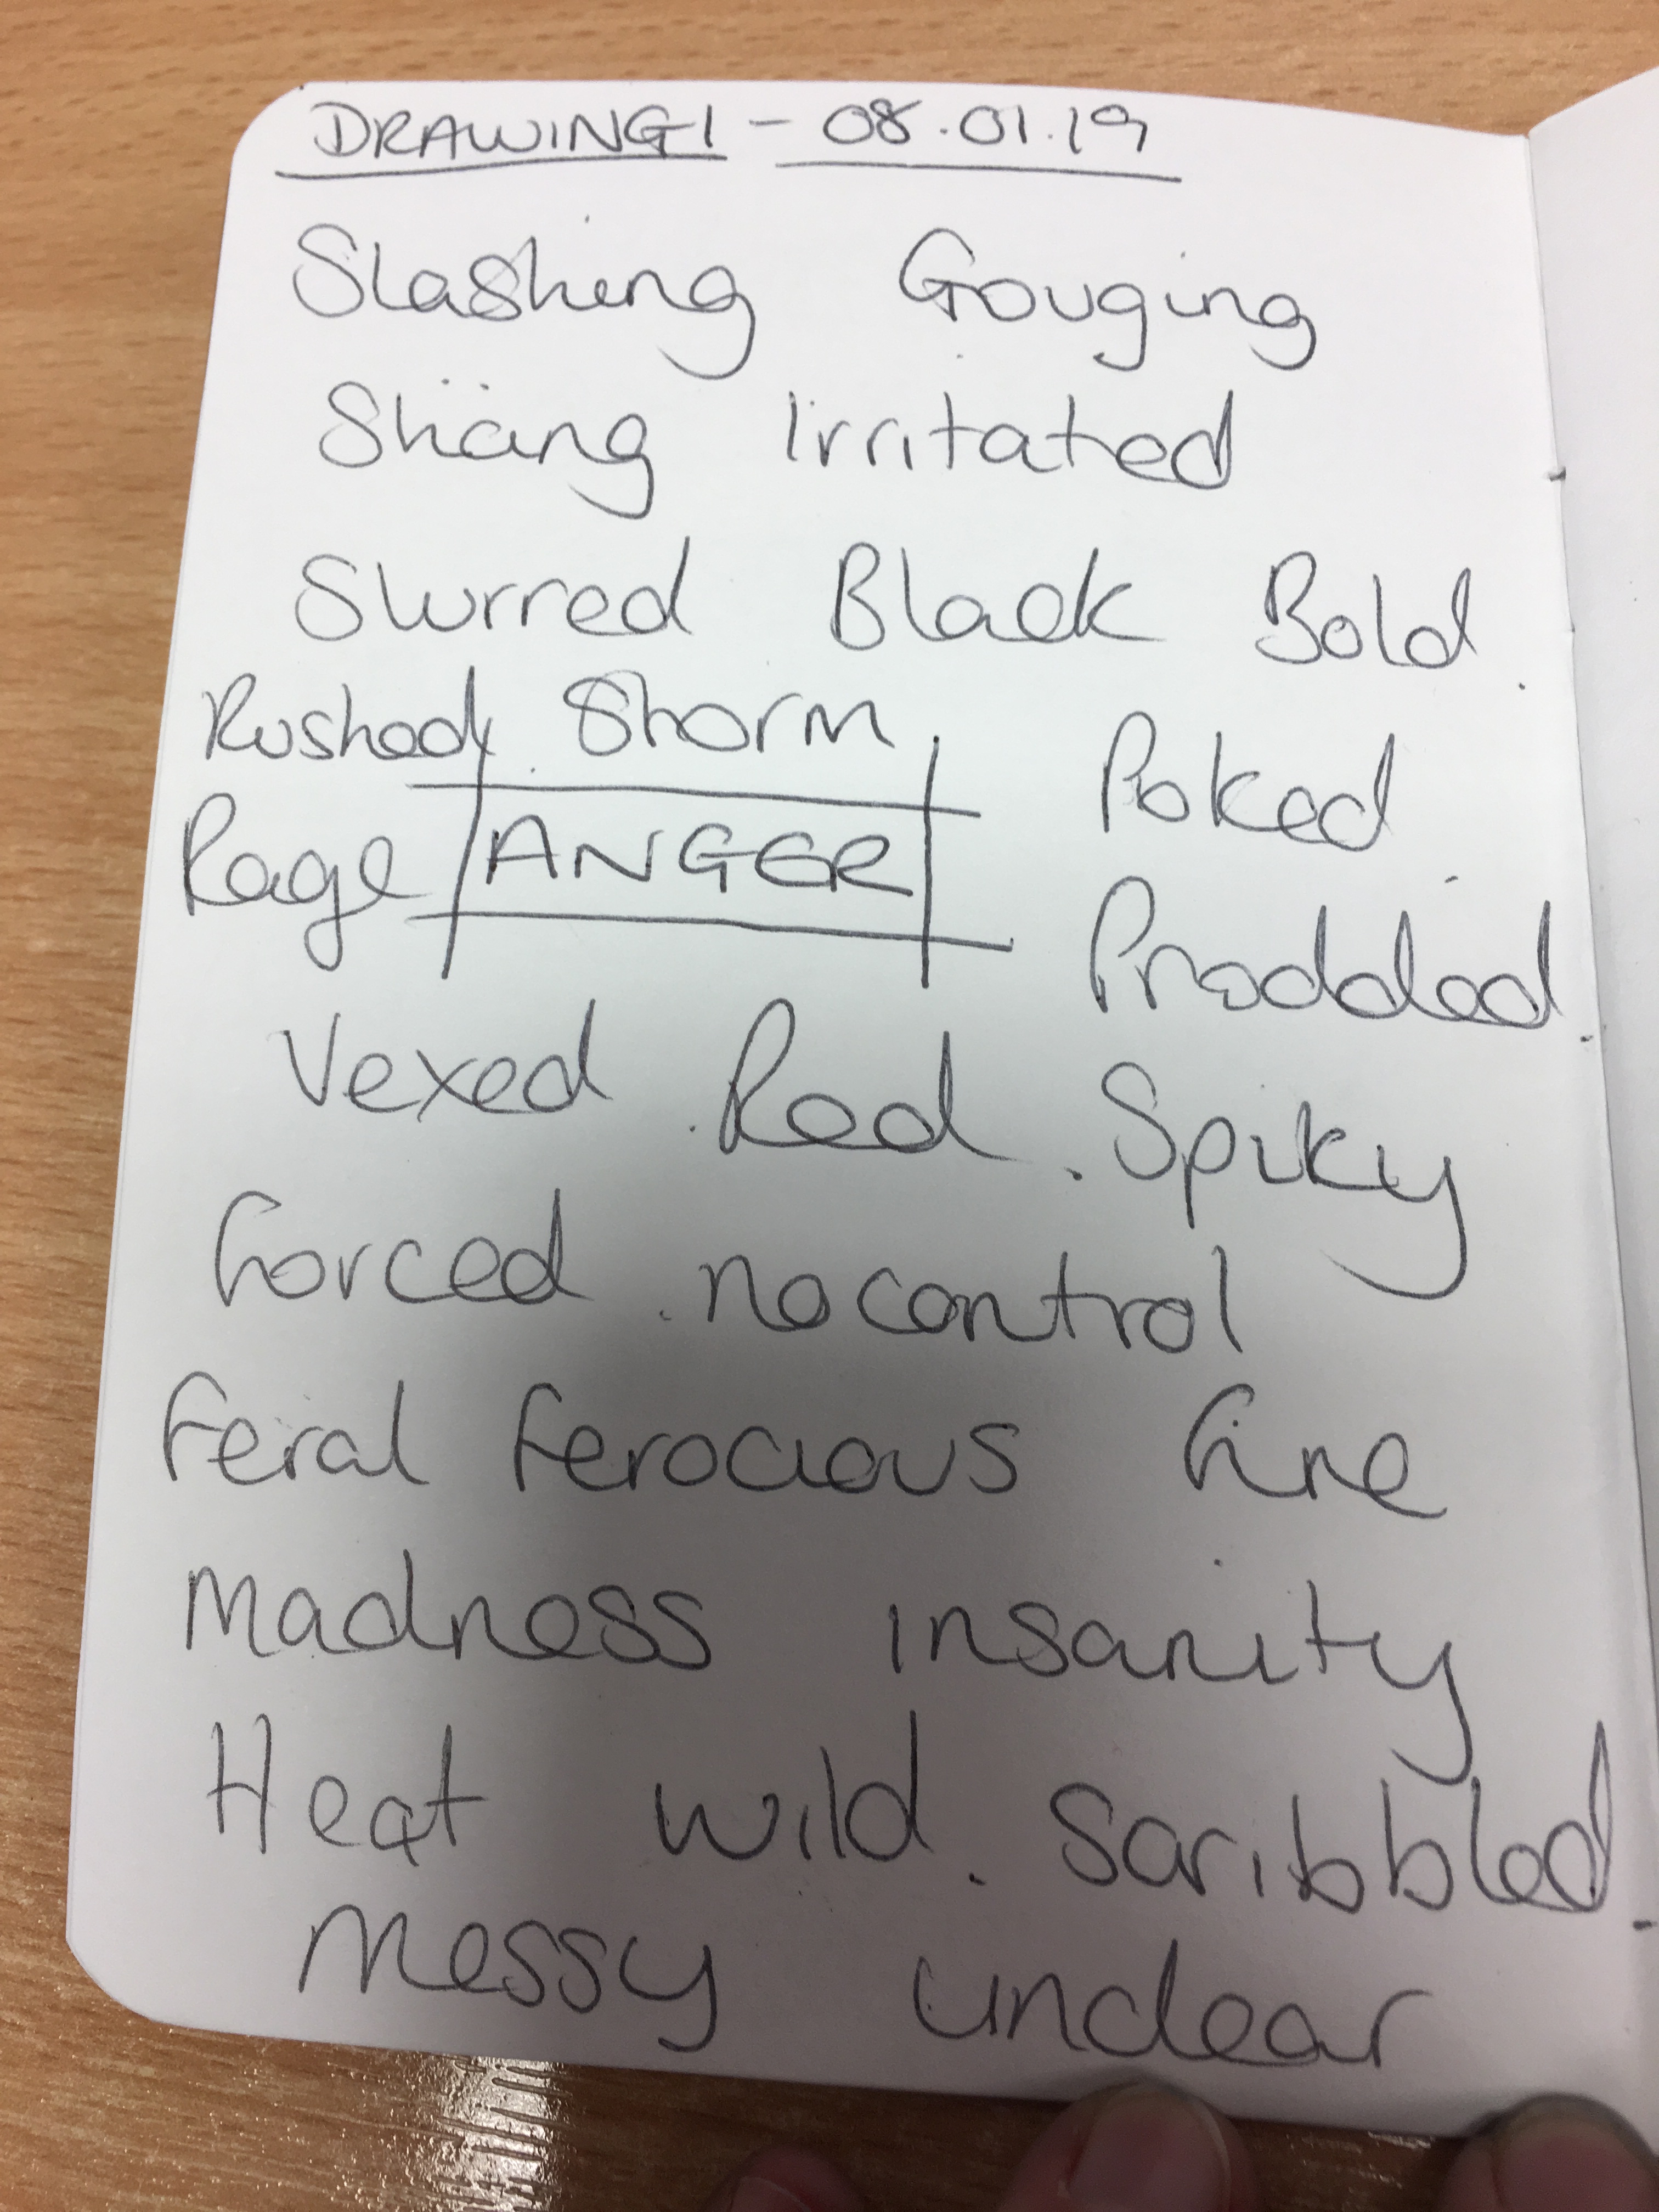 DRAWING 1 - 08.01.19
Slashing Gouging
Slicing Irritated
Slurred Black Bold
Rushed Storm
Poked
Rage ANGER
Prodded
Vexed Red Spiky
Forced no control
Feral Ferocious Fire
Madness insanity
Heat wild Scribbled
Messy unclear